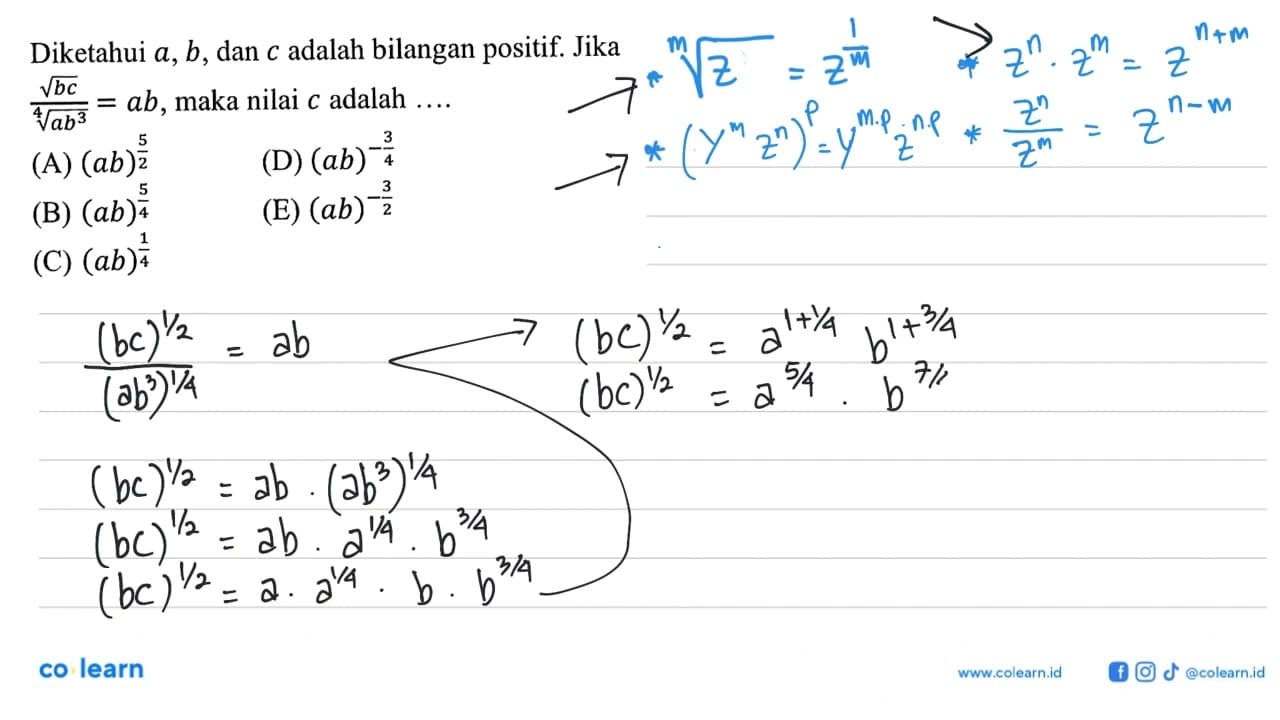 Diketahui a, b, dan c adalah bilangan positif. Jika
√bc / ⁴√ab³ = ab, maka nilai c adalah ....
(A) (ab)^(5/2) (D) (ab)^(-3/4)
(B) (ab)^(5/4) (E) (ab)^(-3/2)
(C) (ab)^(1/4)
* ᵐ√z = z^(1/m) * zⁿ . zᵐ = z^(n+m)
* (yᵐ zⁿ)^p = y^(m.p) . z^(n.p) * zⁿ/zᵐ = z^(n-m)
(bc)^(1/2) / (ab³)^(1/4) = ab
(bc)^(1/2) = ab . (ab³)^(1/4)
(bc)^(1/2) = ab . a^(1/4) . b^(3/4)
(bc)^(1/2) = a . a^(1/4) . b . b^(3/4)
(bc)^(1/2) = a^(1+1/4) b^(1+3/4)
(bc)^(1/2) = a^(5/4) . b^(7/
co learn
www.colearn.id
@colearn.id